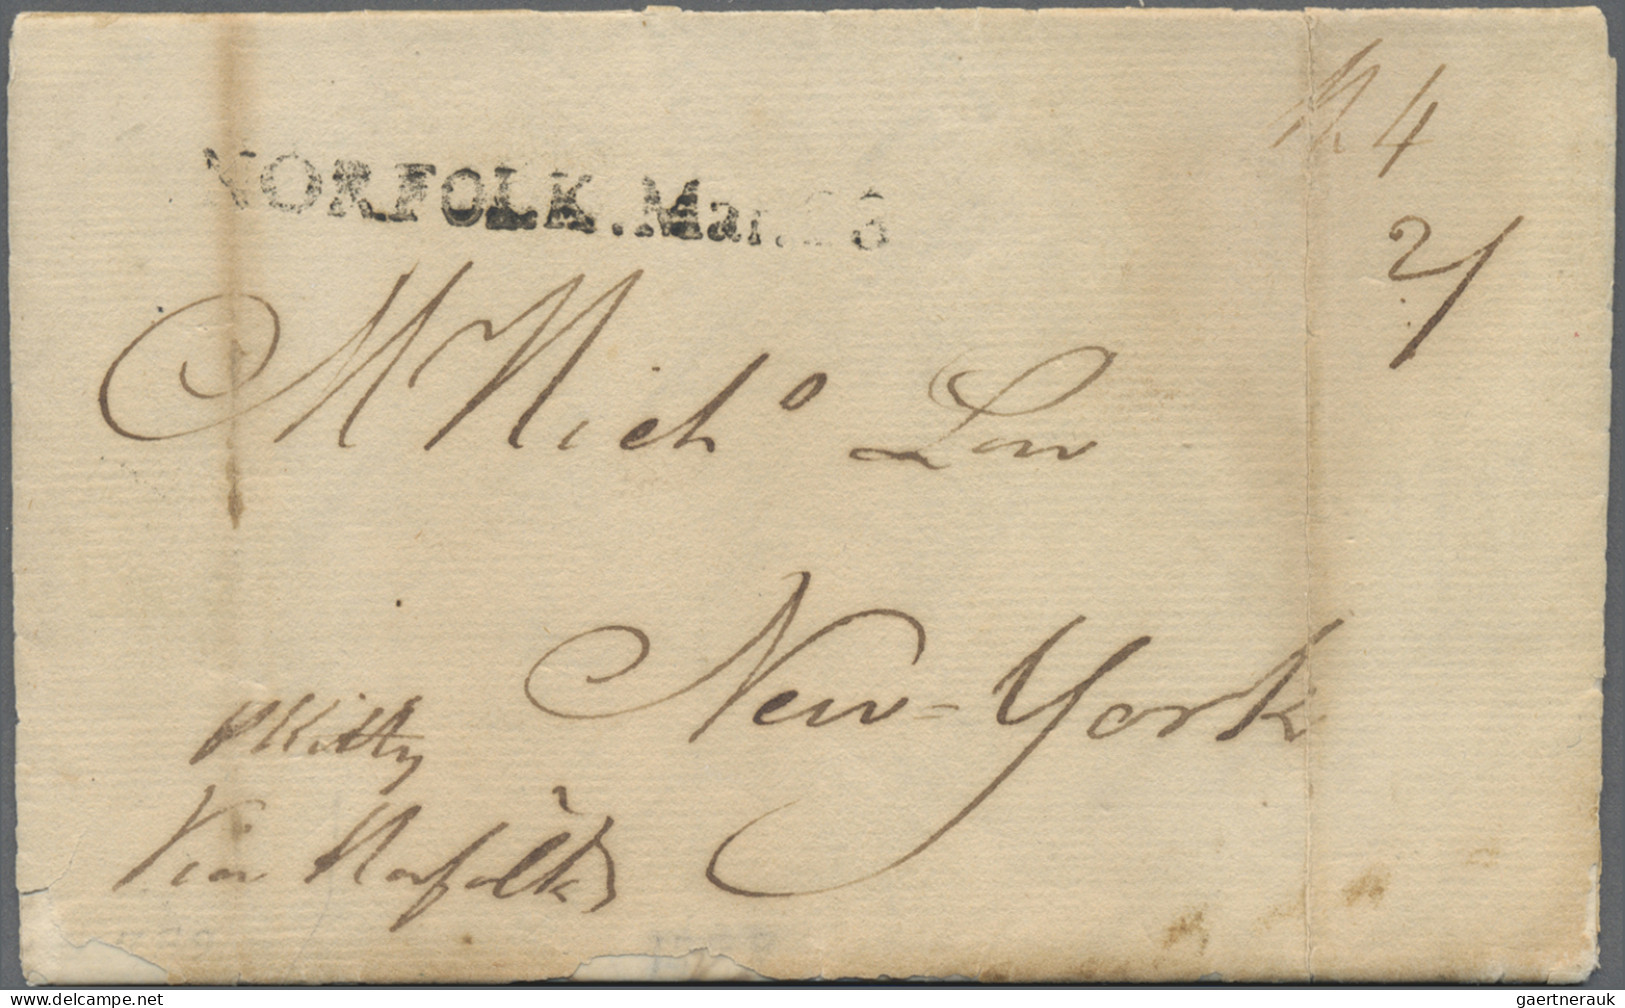 NORFOLK. Mar.
4
2/
Mr Nich⁰ Low
New-York
P Kitty
Via Norfolk
delcampe.net
gaertnerauk